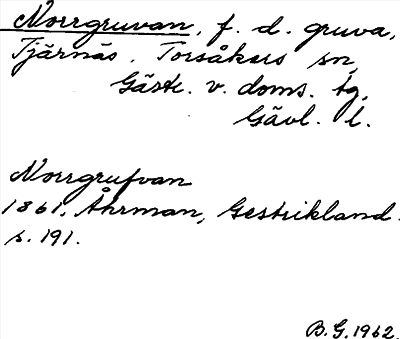 Norrgruvan, f. d. gruva,
Tjärnäs, Torsåkers sn,
Gästr. v. doms. tg,
Gävl. l.
Norrgrufvan
1861, Åhrman, Gestrikland.
s. 191.
B.G. 1962.